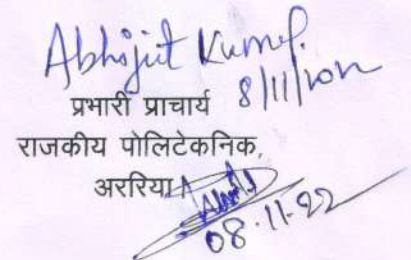 Abhijit Kumar.
8/11/2022
प्रभारी प्राचार्य
राजकीय पोलिटेकनिक,
अररिया।
08.11.22